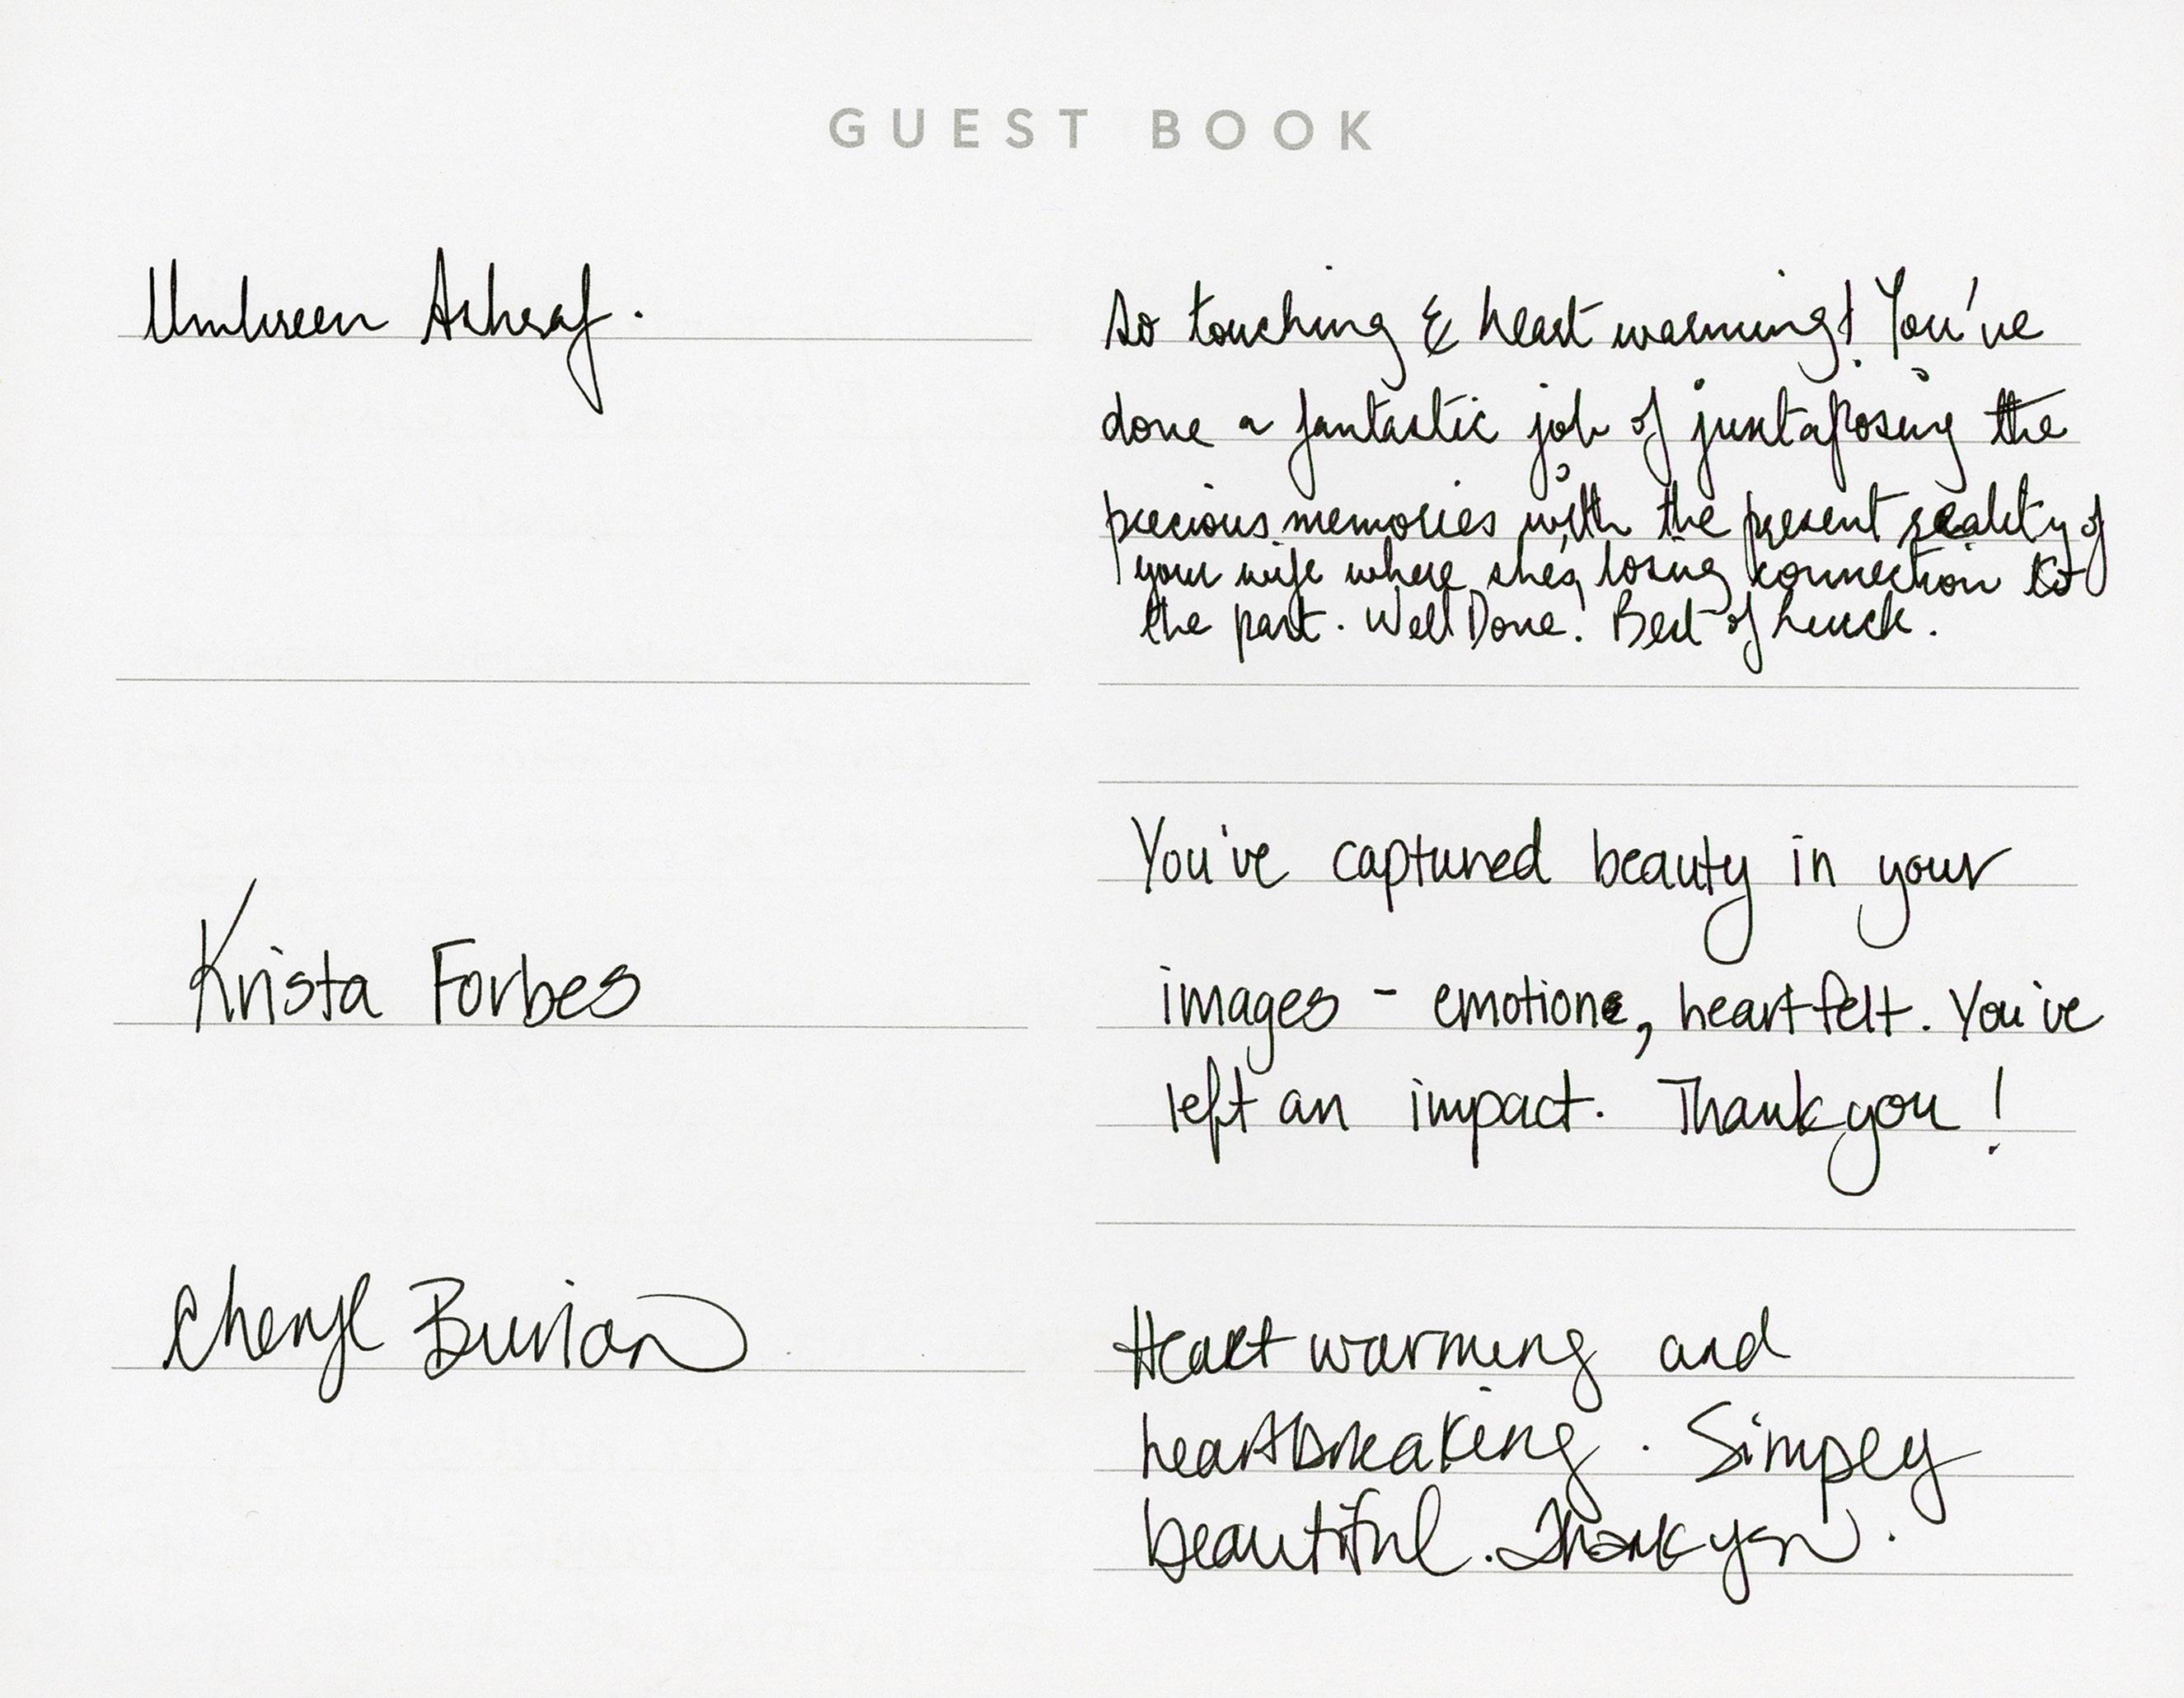 GUEST BOOK
Umbreen Ashraf.
So touching & heart warming! You've
done a fantastic job of juxtaposing the
precious memories with the present reality of
your wife where she's losing connection to
the past. Well Done! Best of Luck.
Krista Forbes
You've captured beauty in your
images - emotions, heartfelt. You've
left an impact. Thank you!
Cheryl Burian
Heart warming and
heartbreaking. Simply
beautiful. Thank you.